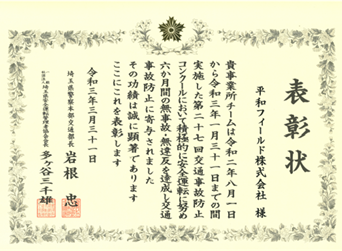 表彰状
平和フィールド株式会社 様
貴事業所チームは令和二年八月一日
から令和三年一月三十一日までの間
実施した第二十七回交通事故防止
コンクールにおいて積極的に安全運転に努め
六か月間の無事故・無違反を達成し交通
事故防止に寄与されました
その功績は誠に顕著であります
ここにこれを表彰します
令和三年三月三十一日
埼玉県警察本部交通部長 岩根 忠
埼玉県安全運転管理者協会会長 多ケ谷三千雄